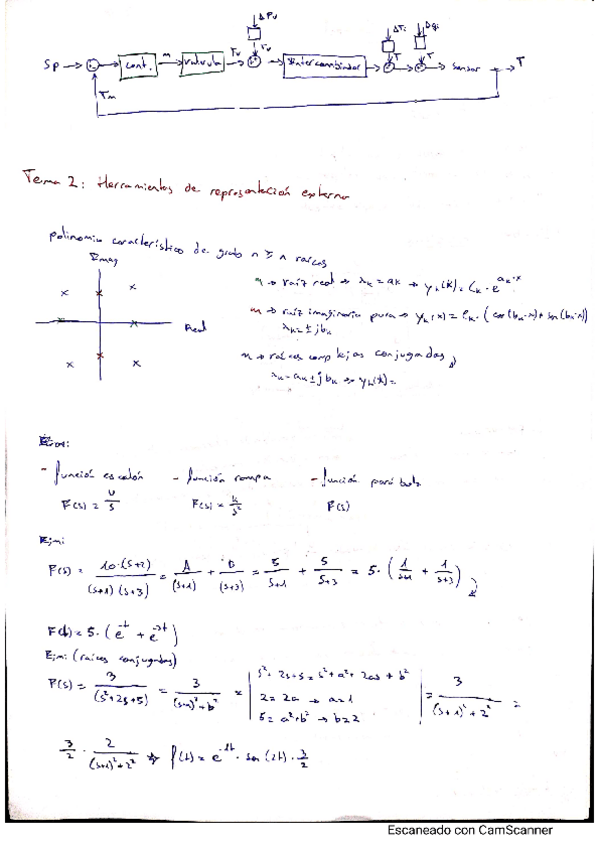 ΔPv
ΔTi ΔQi
Sp → cont. m valvula Tv Tv Intercambiador T T sensor → T
Tm
Tema 2: Herramientas de representación externa
polinomio característico de grado n ≥ n raíces
Imag
Real
n → raíz real → λk = ak → yk(x) = Ck · e^(ak·x)
m → raíz imaginaria pura → yk(x) = Ck · (cos(bk·x) + sen(bk·x))
λk = ± jbk
m → raíces complejas conjugadas
λk = ak ± jbk → yk(x) =
- función escalón - función rampa - función parábola
F(s) = U/s F(s) = k/s² F(s)
Ejm:
F(s) = 10·(s+2)/((s+1)(s+3)) = A/(s+1) + B/(s+3) = 5/(s+1) + 5/(s+3) = 5·(1/(s+1) + 1/(s+3))
F(t) = 5·(e^-t + e^-3t)
Ejm: (raíces conjugadas)
F(s) = 3/(s²+2s+5) = 3/((s+a)²+b²) = | s²+2s+5 = s²+a²+2as+b² | = 3/((s+1)²+2²) =
2 = 2a → a=1
5 = a²+b² → b=2
3/2 · 2/((s+1)²+2²) ⇒ f(t) = e^-1t · sen(2t) · 3/2
Escaneado con CamScanner